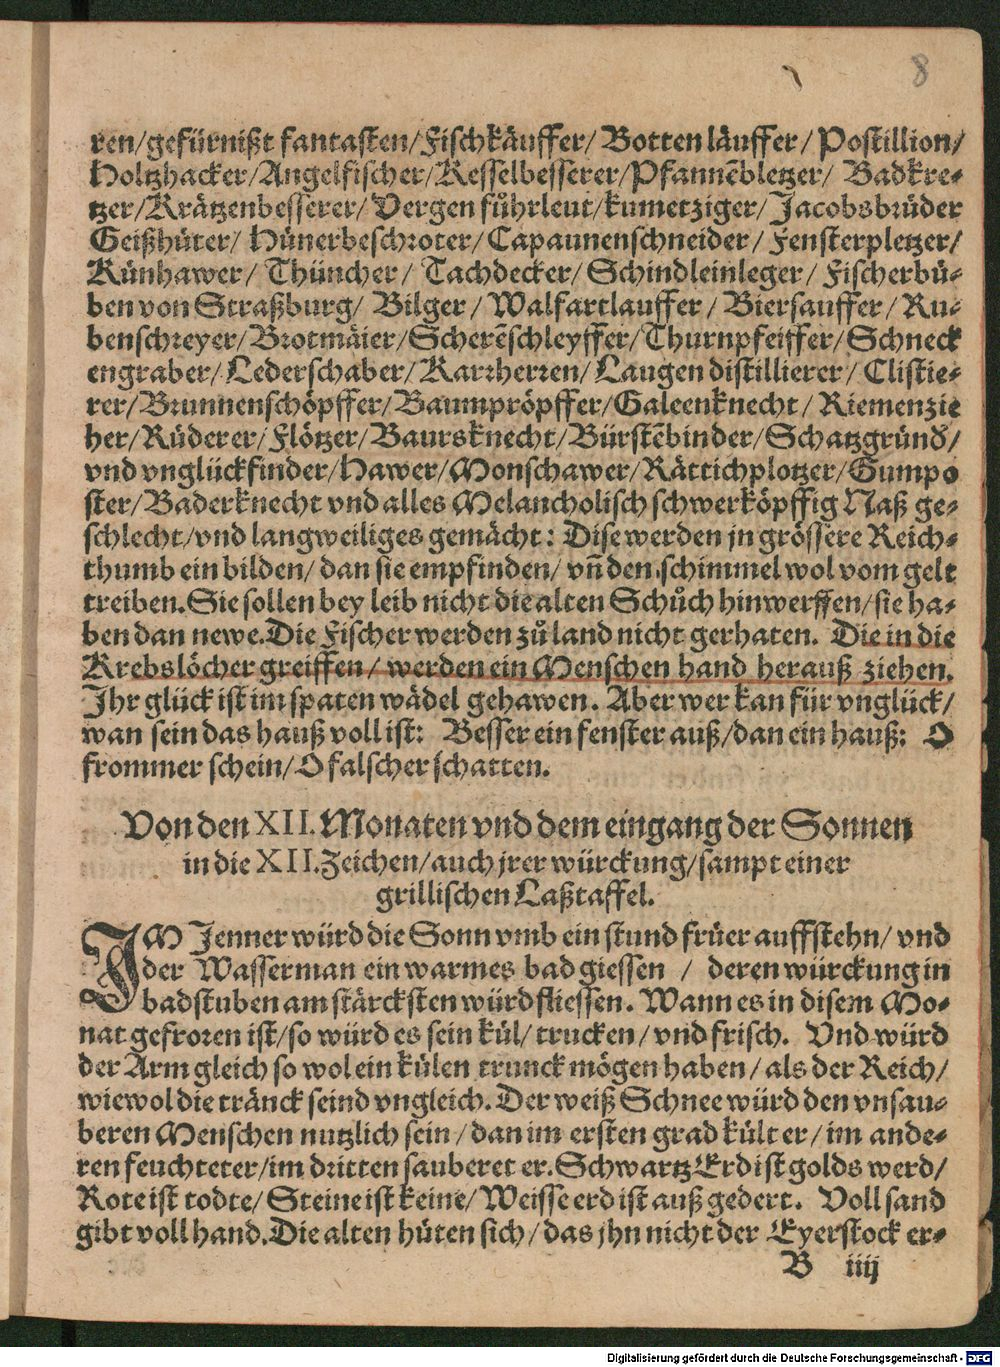 8
ren/gefürnißt fantasten/Fischkäuffer/ Botten läuffer/ Postillion/
Holtzhacker/Angelfischer/Kesselbesserer/Pfannẽbletzer/ Badkre⸗
tzer/Krätzenbesserer/Vergen fůhrleut/kumetziger/Jacobsbrüder
Geißhüter/ Hünerbeschroter/Capaunenschneider/ Fensterpletzer/
Künhawer/ Thüncher/ Tachdecker/ Schindleinleger/ Fischerbü⸗
ben von Straßburg/ Bilger/ Walfartlauffer/ Biersauffer/ Ru⸗
benschreyer/Brotmäier/Scherẽschleyffer/Thurnpfeiffer/Schneck
engraber/Lederschaber/Karrherren/Laugen distillierer/ Clistie⸗
rer/Brunnenschöpffer/Baumpröpffer/Galeenknecht/ Riemenzie
her/Rüderer/Flötzer/Baursknecht/Bürstẽbinder/Schatzgründ'/
vnd vnglückfinder/Hawer/Monschawer/Rättichplotzer/Gumpo
ster/Baderknecht vnd alles Melancholisch schwerköpffig Naß ge⸗
schlecht/vnd langweiliges gemächt: Dise werden jn grössere Reich⸗
thumb einbilden/ dan sie empfinden/ vñ den schimmel wol vom gelt
treiben.Sie sollen bey leib nicht die alten Schůch hinwerffen/sie ha⸗
ben dan newe.Die Fischer werden zů land nicht gerhaten. Die in die
Krebslöcher greiffen/ werden ein Menschen hand herauß ziehen.
Ihr glück ist im spaten wädel gehawen. Aber wer kan für vnglück/
wan sein das hauß voll ist: Besser ein fenster auß/dan ein hauß: O
frommer schein/O falscher schatten.
Von den XII. Monaten vnd dem eingang der Sonnen
in die XII.Zeichen/auch jrer würckung/sampt einer
grillischen Laßtaffel.
IM Jenner würd die Sonn vmb ein stund früer auffstehn/ vnd
der Wasserman ein warmes bad giessen / deren würckung in
badstuben am stärcksten würd fliessen. Wann es in disem Mo⸗
nat gefroren ist/so würd es sein kül/ trucken/ vnd frisch. Vnd würd
der Arm gleich so wol ein külen trunck mögen haben/als der Reich/
wiewol die tränck seind vngleich. Der weiß Schnee würd den vnsau⸗
beren Menschen nutzlich sein/dan im ersten grad kült er/im ande⸗
ren feuchteter/im dritten sauberet er.Schwartz Erd ist golds werd/
Rote ist todte/ Steine ist keine/ Weisse erd ist auß gedert. Voll sand
gibt voll hand.Die alten hüten sich/das jhn nicht der Eyerstock er⸗
B iiij
Digitalisierung gefördert durch die Deutsche Forschungsgemeinschaft - DFG